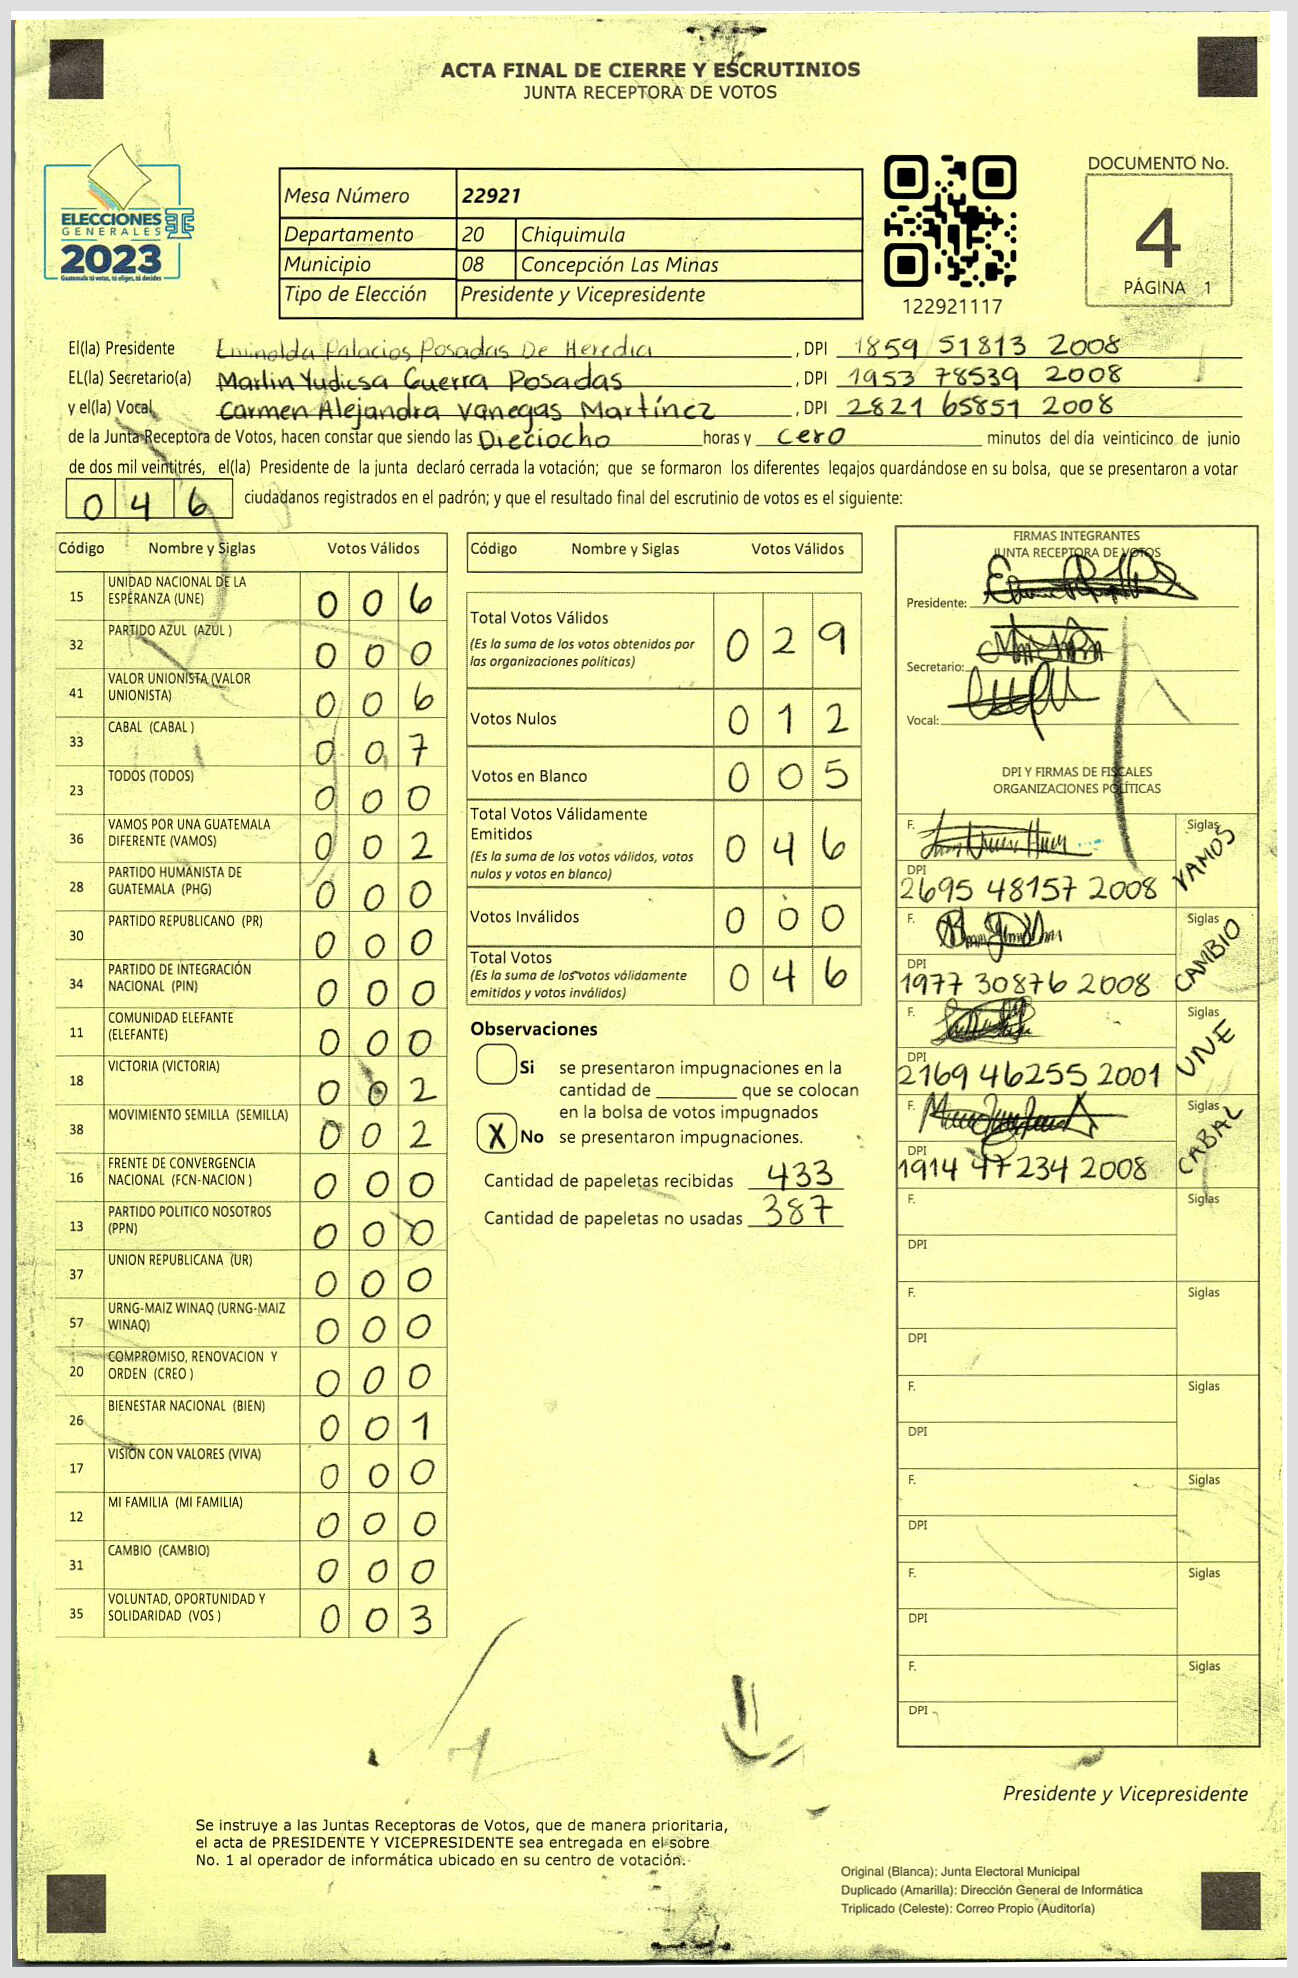 ACTA FINAL DE CIERRE Y ESCRUTINIOS
JUNTA RECEPTORA DE VOTOS
ELECCIONES
GENERALES
2023
Guatemala tú votas, tú eliges, tú decides
Mesa Número 22921
Departamento 20 Chiquimula
Municipio 08 Concepción Las Minas
Tipo de Elección Presidente y Vicepresidente
122921117
DOCUMENTO No.
4
PÁGINA 1
El(la) Presidente Palacios Posadas De Heredia , DPI 1859 51813 2008
EL(la) Secretario(a) Marlin Yudicsa Guerra Posadas , DPI 1953 78539 2008
y el(la) Vocal Carmen Alejandra Vanegas Martínez , DPI 2821 65851 2008
de la Junta Receptora de Votos, hacen constar que siendo las Dieciocho horas y cero minutos del día veinticinco de junio
de dos mil veintitrés, el(la) Presidente de la junta declaró cerrada la votación; que se formaron los diferentes legajos guardándose en su bolsa, que se presentaron a votar
046 ciudadanos registrados en el padrón; y que el resultado final del escrutinio de votos es el siguiente:
Código Nombre y Siglas Votos Válidos
15 UNIDAD NACIONAL DE LA
ESPERANZA (UNE) 006
32 PARTIDO AZUL (AZUL ) 000
41 VALOR UNIONISTA (VALOR
UNIONISTA) 006
33 CABAL (CABAL ) 007
23 TODOS (TODOS) 000
36 VAMOS POR UNA GUATEMALA
DIFERENTE (VAMOS) 002
28 PARTIDO HUMANISTA DE
GUATEMALA (PHG) 000
30 PARTIDO REPUBLICANO (PR) 000
34 PARTIDO DE INTEGRACIÓN
NACIONAL (PIN) 000
11 COMUNIDAD ELEFANTE
(ELEFANTE) 000
18 VICTORIA (VICTORIA) 002
38 MOVIMIENTO SEMILLA (SEMILLA) 002
16 FRENTE DE CONVERGENCIA
NACIONAL (FCN-NACION ) 000
13 PARTIDO POLITICO NOSOTROS
(PPN) 000
37 UNION REPUBLICANA (UR) 000
57 URNG-MAIZ WINAQ (URNG-MAIZ
WINAQ) 000
20 COMPROMISO, RENOVACION Y
ORDEN (CREO ) 000
26 BIENESTAR NACIONAL (BIEN) 001
17 VISION CON VALORES (VIVA) 000
12 MI FAMILIA (MI FAMILIA) 000
31 CAMBIO (CAMBIO) 000
35 VOLUNTAD, OPORTUNIDAD Y
SOLIDARIDAD (VOS ) 003
Código Nombre y Siglas Votos Válidos
Total Votos Válidos 029
(Es la suma de los votos obtenidos por
las organizaciones políticas)
Votos Nulos 012
Votos en Blanco 005
Total Votos Válidamente
Emitidos 046
(Es la suma de los votos válidos, votos
nulos y votos en blanco)
Votos Inválidos 000
Total Votos 046
(Es la suma de los votos válidamente
emitidos y votos inválidos)
Observaciones
Si se presentaron impugnaciones en la
cantidad de ________ que se colocan
en la bolsa de votos impugnados
X No se presentaron impugnaciones.
Cantidad de papeletas recibidas 433
Cantidad de papeletas no usadas 387
FIRMAS INTEGRANTES
JUNTA RECEPTORA DE VOTOS
Presidente:
Secretario:
Vocal:
DPI Y FIRMAS DE FISCALES
ORGANIZACIONES POLÍTICAS
F. Siglas VAMOS
DPI 2695 48157 2008
F. Siglas CAMBIO
DPI 1977 30876 2008
F. Siglas UNE
DPI 2169 46255 2001
F. Siglas CABAL
DPI 1914 47234 2008
F. Siglas
DPI
F. Siglas
DPI
F. Siglas
DPI
F. Siglas
DPI
F. Siglas
DPI
F. Siglas
DPI
Presidente y Vicepresidente
Se instruye a las Juntas Receptoras de Votos, que de manera prioritaria,
el acta de PRESIDENTE Y VICEPRESIDENTE sea entregada en el sobre
No. 1 al operador de informática ubicado en su centro de votación.
Original (Blanca): Junta Electoral Municipal
Duplicado (Amarilla): Dirección General de Informática
Triplicado (Celeste): Correo Propio (Auditoría)